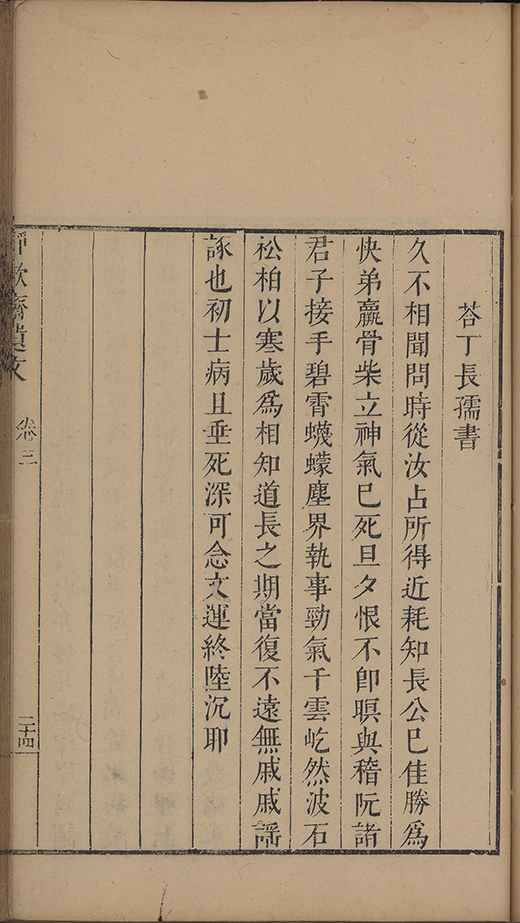 荅丁長孺書
久不相聞問時從汝占所得近耗知長公巳佳勝爲
快弟羸骨柴立神氣巳死旦夕恨不卽暝與稽阮諸
君子接手碧霄蠛蠓塵界執事勁氣干雲屹然波石
松柏以寒歲爲相知道長之期當復不遠無戚戚謡
諑也初士病且垂死深可念文運終陸沉耶
歇齋遺文
卷三
二十四